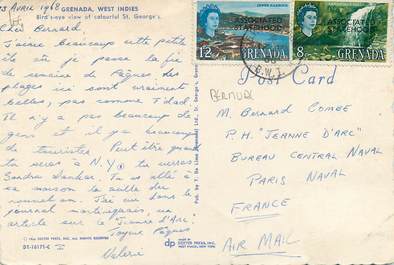 3 AVRIL 1968
GRENADA, WEST INDIES
Bird's-eye view of colourful St. George's.
Cher Bernard
J'aime beaucoup cette petite
île où je passe la fin
de semaine de Pâques. des
plages ici sont vraiment
belles, pas comme T'dad.
Il n'y a pas beaucoup de
gens et il y a beaucoup
de touristes. Peut être quand
tu seras à N.Y. tu verras
Sandra Tu as allé à
sa maison la veille du
nouvel an. J'ai vu dans le
journal martiniquais, un
article sur le Jeanne d'Arc!
Joyeux Pâques
Valerie
DEXTER PRESS, INC.
DT-18171-C
dp
MADE BY
DEXTER PRESS, INC.
WEST NYACK, NEW YORK
INNER HARBOUR
ASSOCIATED
STATEHOOD
12
GRENADA
ASSOCIATED
STATEHOOD
8
GRENADA
Post Card
M. BERNARD COMBE
P.H. "JEANNE D'ARC"
BUREAU CENTRAL NAVAL
PARIS NAVAL
FRANCE
AIR MAIL